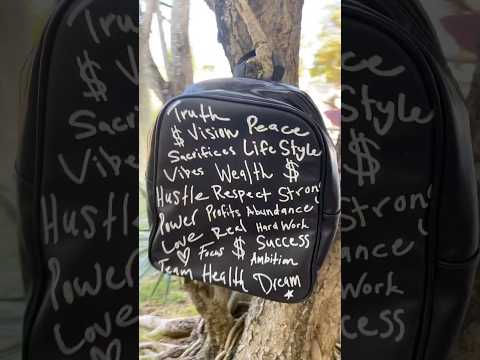 Truth
$ Vision Peace
Sacrifices Life Style
Vibes Wealth $
Hustle Respect Strong
Power Profits Abundance
Love Real Hard Work
♡ Focus $ Success
Ambition
Team Health Dream